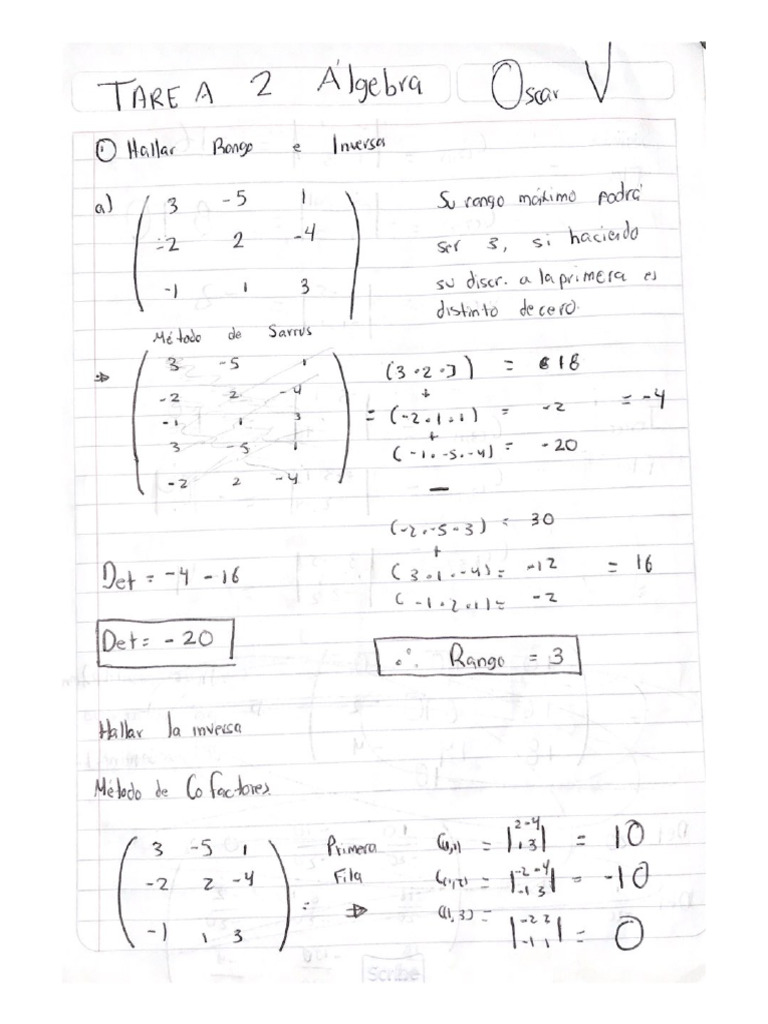 TAREA 2 Álgebra Oscar V
① Hallar Rango e Inversa
a) ( 3 -5 1
-2 2 -4
-1 1 3 )
Su rango máximo podrá
ser 3, si haciendo
su discr. a la primera es
distinto de cero.
Método de Sarrus
⇒ ( 3 -5 1
-2 2 -4
-1 1 3
3 -5 1
-2 2 -4 )
= (3·2·3) = 18
+
(-2·1·1) = -2 = -4
+
(-1·-5·-4) = -20
−
(-2·-5·3) = 30
+
(3·1·-4) = -12 = 16
(-1·2·1) = -2
Det = -4 -16
Det = -20
∴ Rango = 3
Hallar la inversa
Método de Cofactores.
( 3 -5 1
-2 2 -4
-1 1 3 )
= Primera
Fila
⇒
C(1,1) = |2 -4
1 3| = 10
C(1,2) = |-2 -4
-1 3| = -10
C(1,3) = |-2 2
-1 1| = 0
Scribe